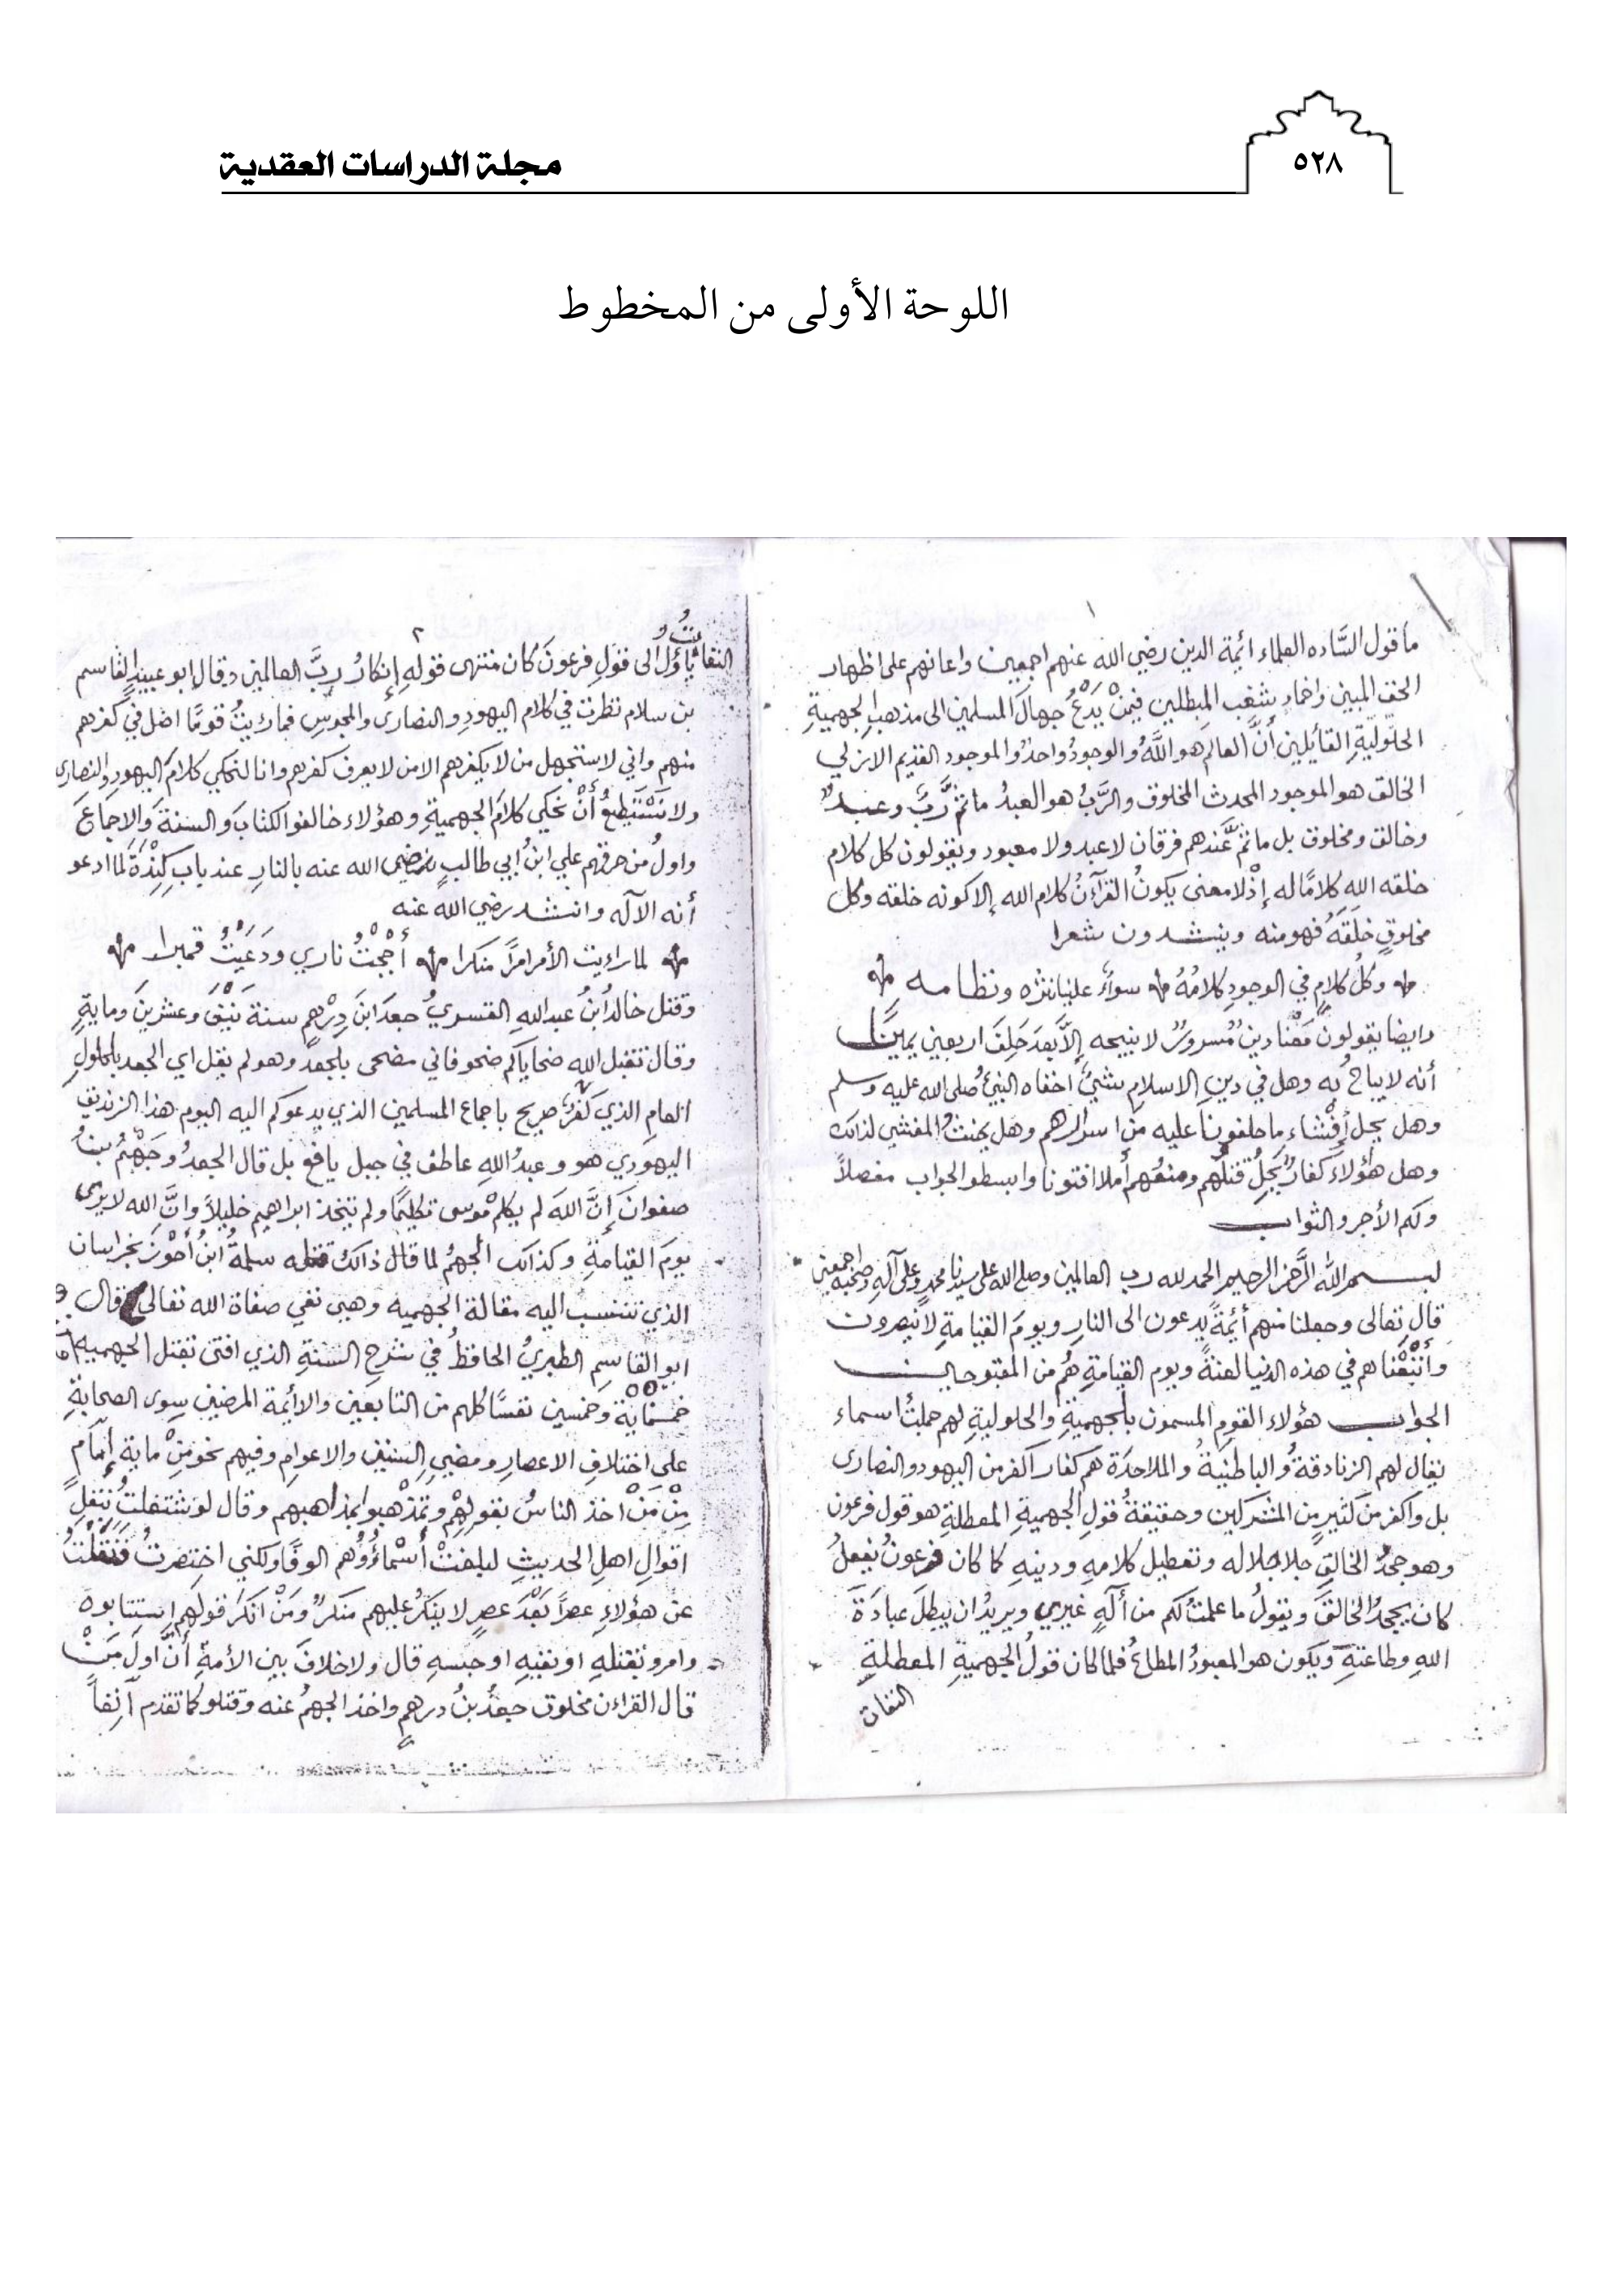 ٥٢٨
مجلة الدراسات العقدية
اللوحة الأولى من المخطوط
١
ما قول السَّاده العلماء ائمة الدين رضي الله عنهم اجمعين واعانهم على اظهار
الحق المبين واخماد شغب المبطلين فيمنْ يَدْعُ جهالَ المسلمين الى مذهبِ الجهميةِ
الحلوليةِ القائلين أنَّ العالمَ هو اللَّهُ والوجودُ واحدٌ والموجود القديم الازلي
الخالق هو الموجود المحدث المخلوق والرَّبُ هو العبدُ ما ثَمَّ رَبٌّ وعبدٌ
وخالق ومخلوق بل ما ثمَّ عندهم فرقان لاعبد ولا معبود ويقولون كل كلام
خلقه اللهِ كلامًا له إذْ لا معنى يكونُ القرآنُ كلام الله إلا كونه خلقه وكل
مخلوقٍ خلقَهُ فهو منه وينشدون شعرا
وكلُ كلامٍ في الوجودِ كلامُهُ سواءٌ علينا نثره ونظامه
وايضا يقولون مَعْنا دينٌ مسرورٌ لا نبيحه إلاَّ بَعدَ حَلِفَ اربعين يمينًا
أنه لا يباحُ به وهل في دينِ الاسلامِ شئٌ اخفاه النبيُ صلى الله عليه وسلم
وهل يحل أفْشاء ما حلفونا عليه من اسرارهم وهل يحنثُ المفشي لذالك
وهل هؤلاءِ كفارٌ يَحِلُ قتلُهم ومنعُهم أملا افتونا وابسطو الجواب مفصلاً
ولكم الأجر والثواب
بسم الله الرَّحمن الرحيم الحمد لله رب العالمين وصلى الله على سيدنا محمدٍ وعلى آلهِ وصحبه اجمعين
قال تعالى وجعلنا منهم أئمةً يدعون الى النارِ ويومَ القيامةِ لا ينصرون
وأتْبَعْناهم في هذه الدنيا لعنةً ويوم القيامةِ هُم من المقبوحين
الجواب هؤلاء القوم المسمون بالجهميةِ والحلوليةِ لهم جملتُ اسماء
يقال لهم الزنادقةُ والباطنيةُ والملاحدَة هم كفار اكفر من اليهود والنصارى
بل واكفر من كثيرٍ من المشركين وحقيقةُ قولِ الجهميةِ المعطلةِ هو قول فرعون
وهو جحدُ الخالقِ جلا جلاله وتعطيل كلامهِ ودينهِ كما كان فرعونُ يفعلُ
كان يجحدُ الخالقَ ويقولُ ما علمتُ لكم من ألهٍ غيري ويريدُ ان يبطلَ عبادَةَ
اللهِ وطاعتهِ ويكون هو المعبودُ المطاعُ فلما كان قولُ الجهميةِ المعطلةِ
النفات
٢
النفات يأوُلُ الى قولِ فرعونَ كان منتهى قولهِ إنكارُ ربَّ العالمين وقال ابو عبيد القاسم
بن سلام نظرت في كلام اليهودِ والنصارى والمجوسِ فما رئيتُ قومًا اضل في كفرهم
منهم واني لاستجهل من لا يكفرهم الا من لا يعرف كفرهم وانا لنحكي كلام اليهودِ والنصارى
ولا نستَطيعُ أنْ نحكي كلامَ الجهميةِ وهؤلاء خالفو الكتابَ والسنةَ والاجماعَ
واولُ من حرقهم علي ابنُ أبي طالبٍ رضي الله عنه بالنارِ عند بابِ كِنْدَةَ لما ادعو
أنه الآله وانشد رضي الله عنه
لما رايت الأمر امرًا منكرا أججْتُ ناري ودَعَيْتُ قمبرا
وقتل خالدُ ابنُ عبد اللهِ القسريُ جعدَ ابنَ دِرْهمٍ سنة نَيْفَ وعشرينَ ومايةٍ
وقال تقبل الله ضحاياكم ضحو فاني مضحى بالجعد وهو لم يقل اي الجعد بالحلولِ
العامِ الذي كفرٌ صريح باجماع المسلمين الذي يدعوكم اليه اليوم هذا الزنديق
اليهودي هو وعبدُ اللهِ عاطف في جبل يافع بل قال الجعدُ وجَهْمُ بنُ
صفوانَ إنَّ اللهَ لم يكلمْ موسى تكليمًا ولم يتخذ ابراهيم خليلاً وانَّ الله لا يرى
يومَ القيامةِ وكذالك الجهمُ لما قال ذالك قتله سلمةُ ابنُ أحْوَزَ بخراسان
الذي تنسب اليه مقالة الجهميه وهي نفي صفاة الله تعالى قال
ابو القاسِم الطبريُ الحافظُ في شرحِ السنةِ الذي افتى بقتل الجهميه
خمسْمايَة وخمسين نفسًا كلهم من التابعين والأئمة المرضين سوى الصحابةِ
على اختلافِ الاعصارِ ومضيِ السنين والاعوامِ وفيهم نحو مِنْ مايةِ إمامٍ
مِنْ مَنْ اخذ الناسُ بقولِهمْ وتمذْهبو بمذاهبهم وقال لو شتغلتُ بنقلِ
اقوالِ اهلِ الحديثِ لبلغتْ أسْمائُوُهم الوفًا ولكني اختصرتُ فنَقَلْتُ
عن هؤلاءِ عصراً بَعْدَ عصرٍ لا ينكرُ عليهم منكرٌ ومَنْ انكرَ قولَهم استتابوه
وامرو بقتلهِ او نفيهِ او حبسهِ قال ولا خلافَ بين الأمةِ أنَّ اولَ مَنْ
قال القرءان مخلوق جعدُ بنُ درهمٍ واخذ الجهمُ عنه وقتلو كما تقدم آنِفاً